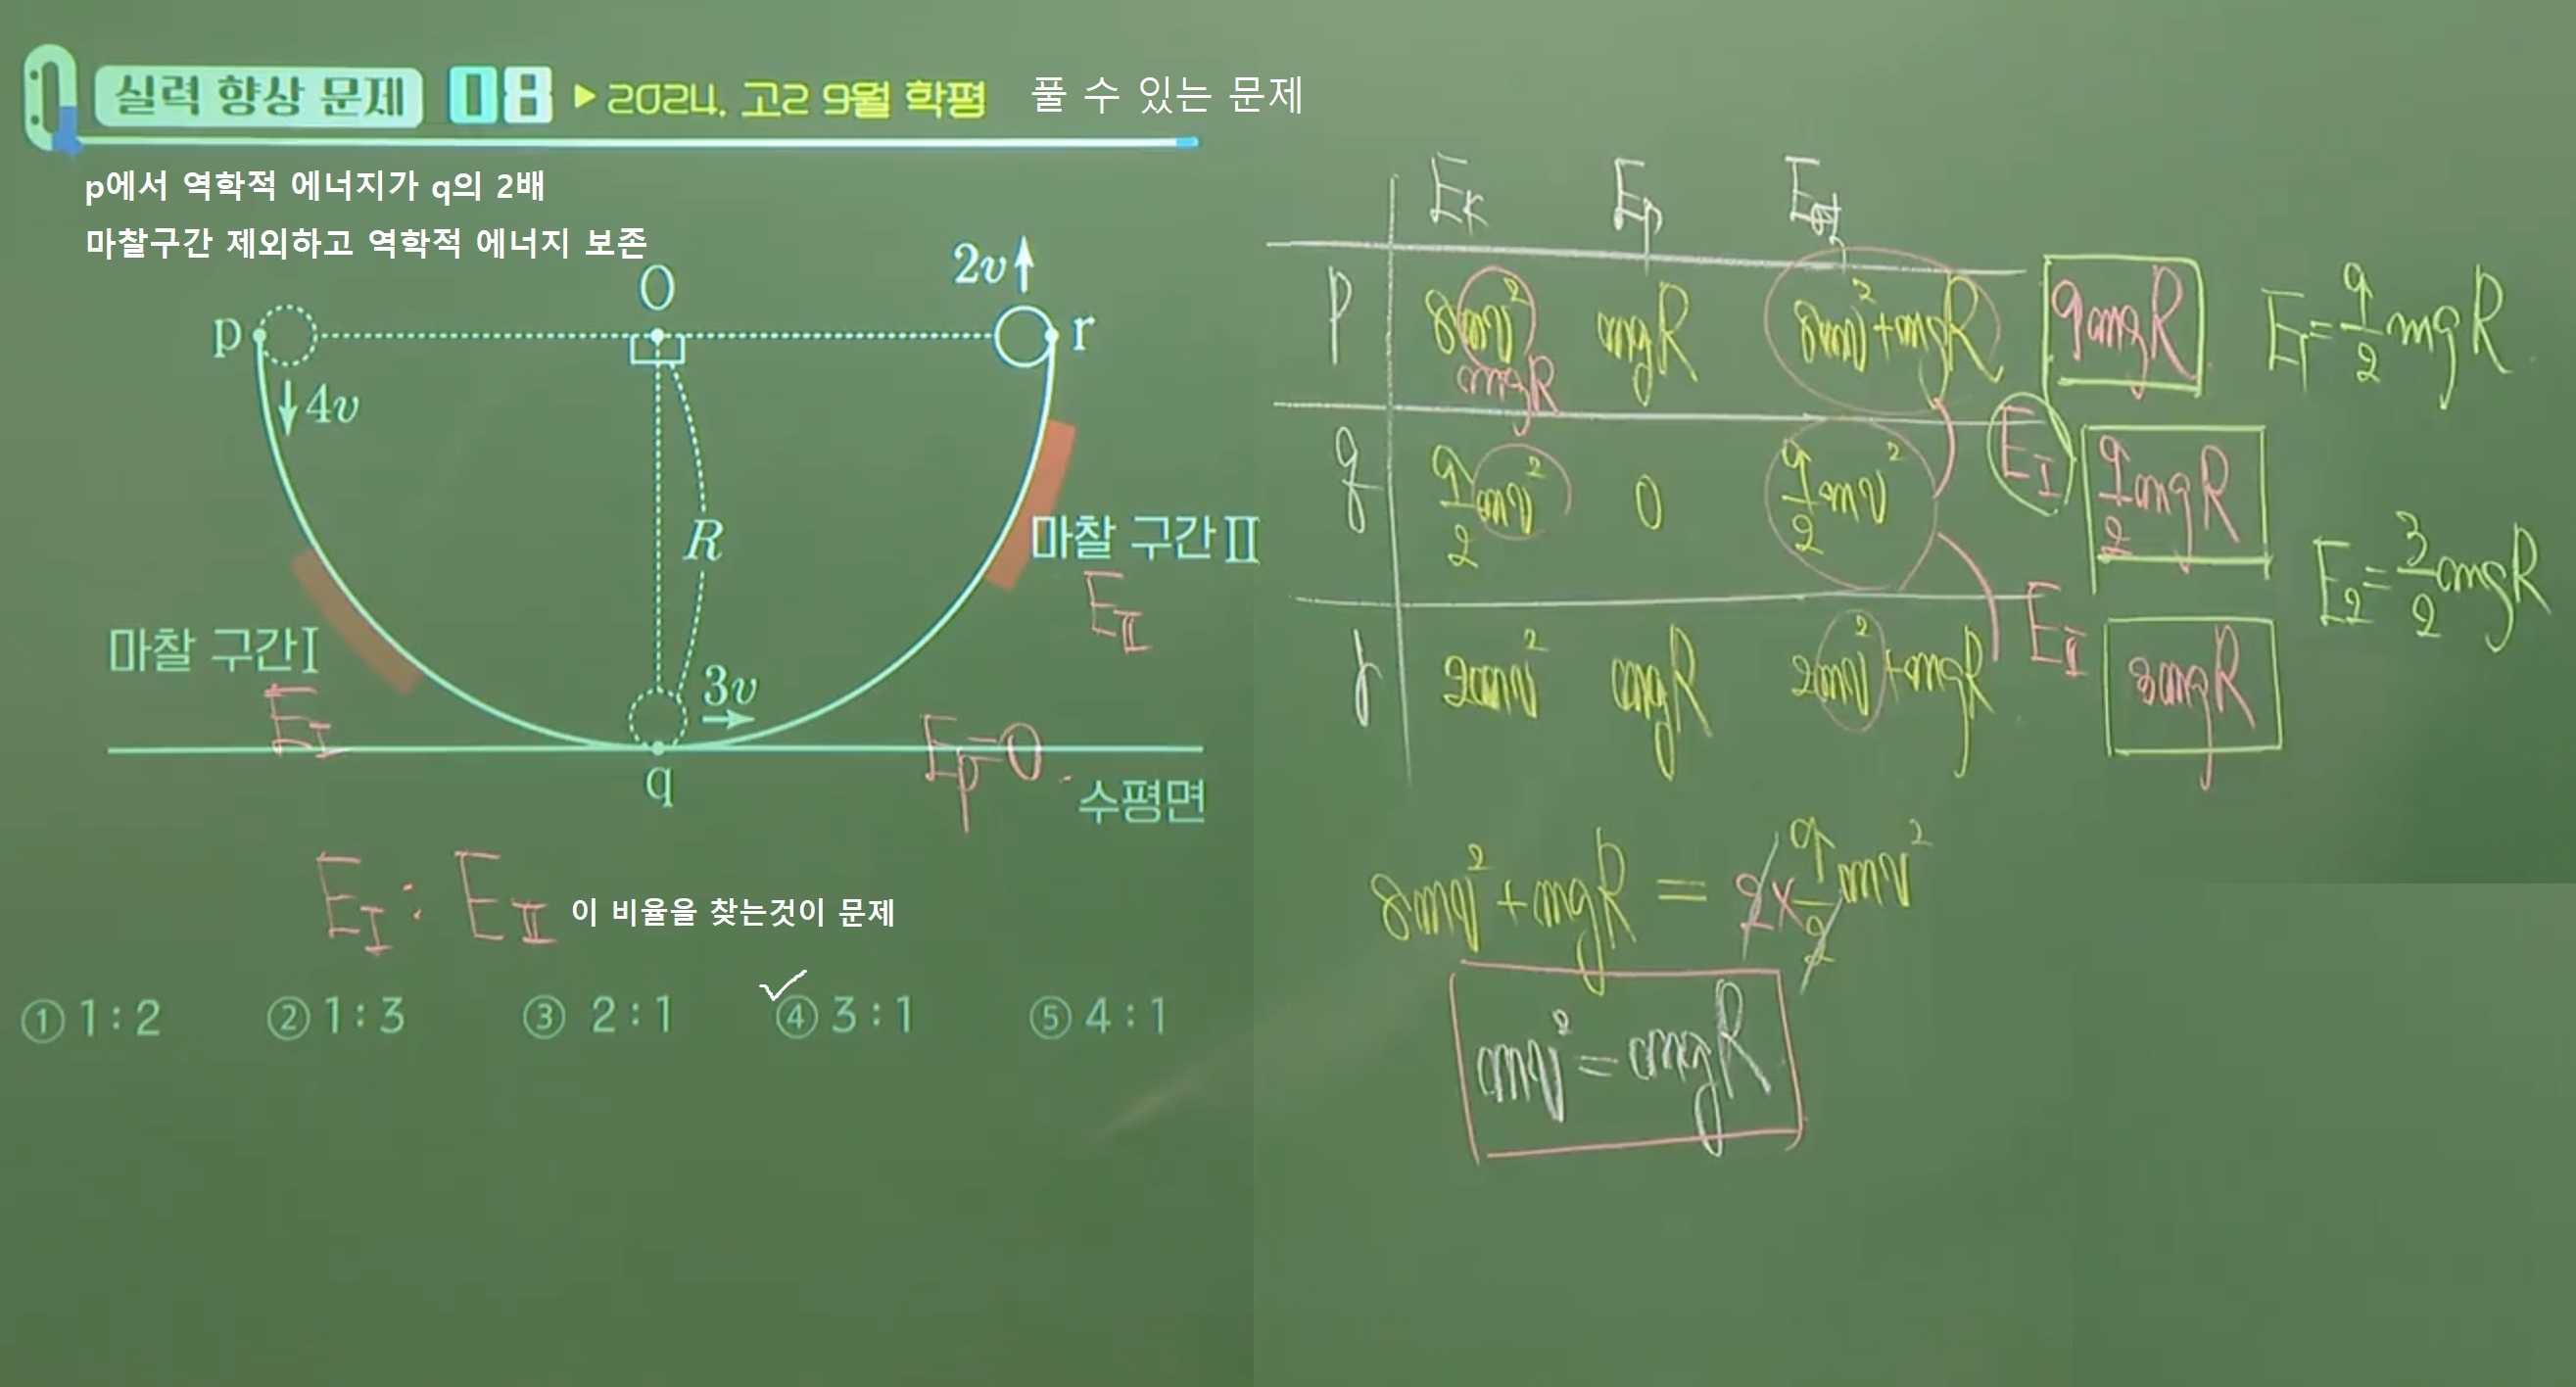 실력 향상 문제 08 ▶ 2024. 고2 9월 학평 풀 수 있는 문제
p에서 역학적 에너지가 q의 2배
마찰구간 제외하고 역학적 에너지 보존
O
2v
p
r
4v
R
마찰 구간 Ⅱ
E_Ⅱ
마찰 구간 Ⅰ
E_Ⅰ
3v
q
E_p=0
수평면
E_Ⅰ : E_Ⅱ 이 비율을 찾는것이 문제
① 1 : 2 ② 1 : 3 ③ 2 : 1 ④ 3 : 1 ⑤ 4 : 1
E_k E_p E_역
p 8mv² mgR 8mv²+mgR 9mgR E_Ⅰ=9/2mgR
mgR
q 9/2mv² 0 9/2mv² E_Ⅰ 9/2mgR
E_2=3/2mgR
r 2mv² mgR 2mv²+mgR E_Ⅱ 3mgR
8mv²+mgR = 2×9/2mv²
mv²=mgR